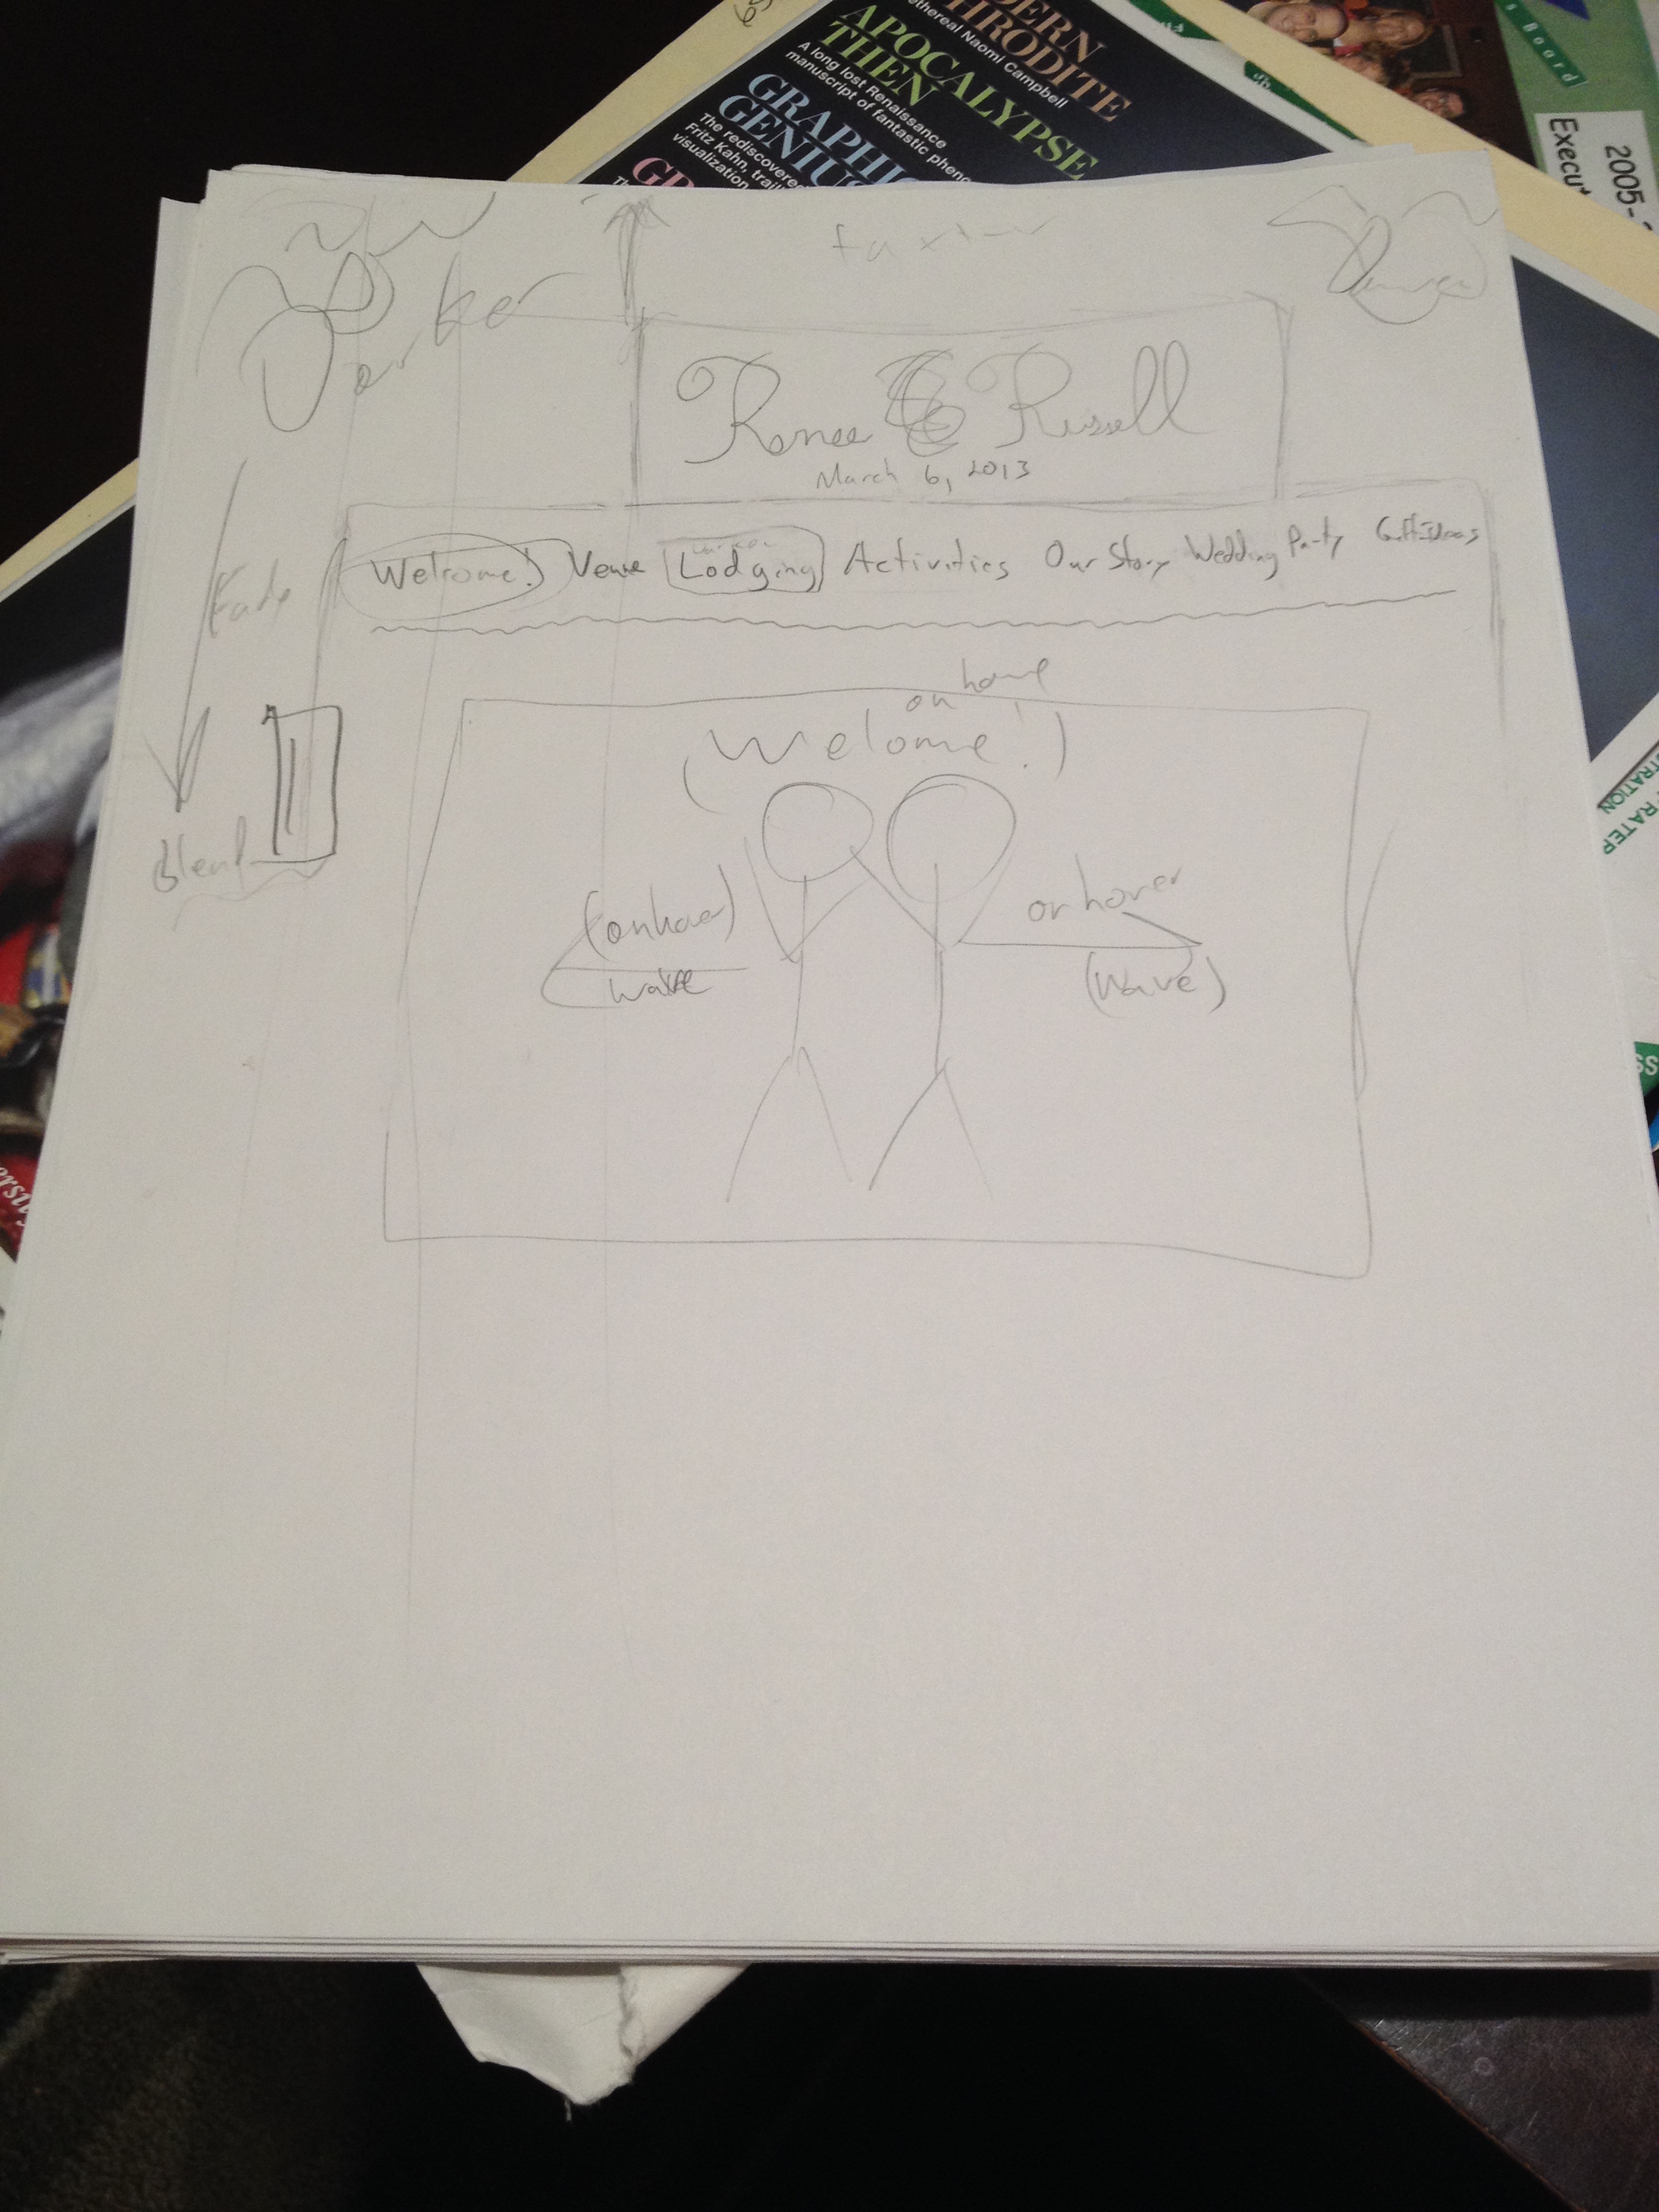 ERN
HRODITE
ethereal Naomi Campbell
APOCALYPSE
THEN
A long lost Renaissance
manuscript of fantastic pheno
GRAPHIC
GENIUS
The rediscovered
Fritz Kahn, trail
visualization
GR
s Board
2005-
Execut
Darker
Renee & Russell
March 6, 2013
Welcome! Venue Lodging Activities Our Story Wedding Party Gift Ideas
Fade
Blend
on home
(Welome!)
(on hover)
wave
on hover
(wave)
TRATION
RATER
SS
ersi